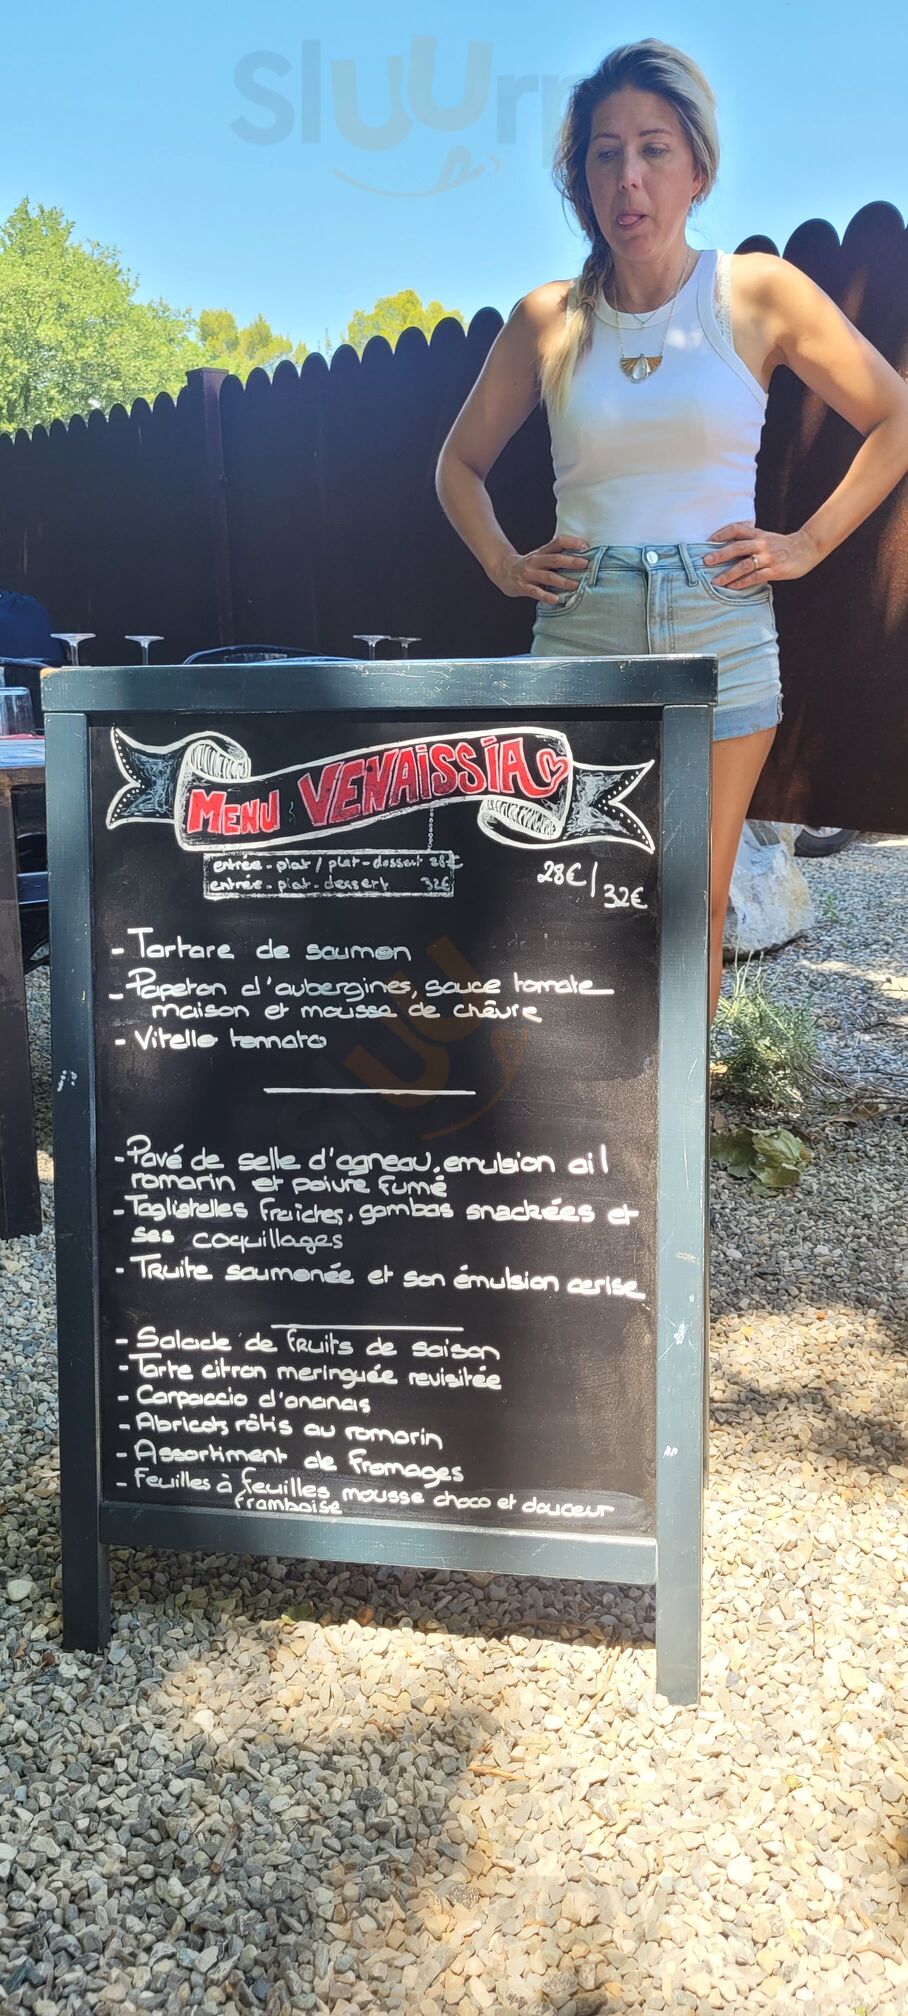 Sluurp
MENU VENAISSIA
entrée - plat / plat - dessert 28€
entrée - plat - dessert 32€
28€/
32€
- Tartare de saumon
- Papeton d'aubergines, sauce tomate
maison et mousse de chèvre
- Vitello tonnato
- Pavé de selle d'agneau, emulsion ail
romarin et poivre fumé
- Tagliatelles fraîches, gambas snackées et
ses coquillages
- Truite saumonée et son émulsion cerise
- Salade de fruits de saison
- Tarte citron meringuée revisitée
- Carpaccio d'ananas
- Abricots rôtis au romarin
- Assortiment de fromages
- Feuilles à feuilles mousse choco et douceur
framboise